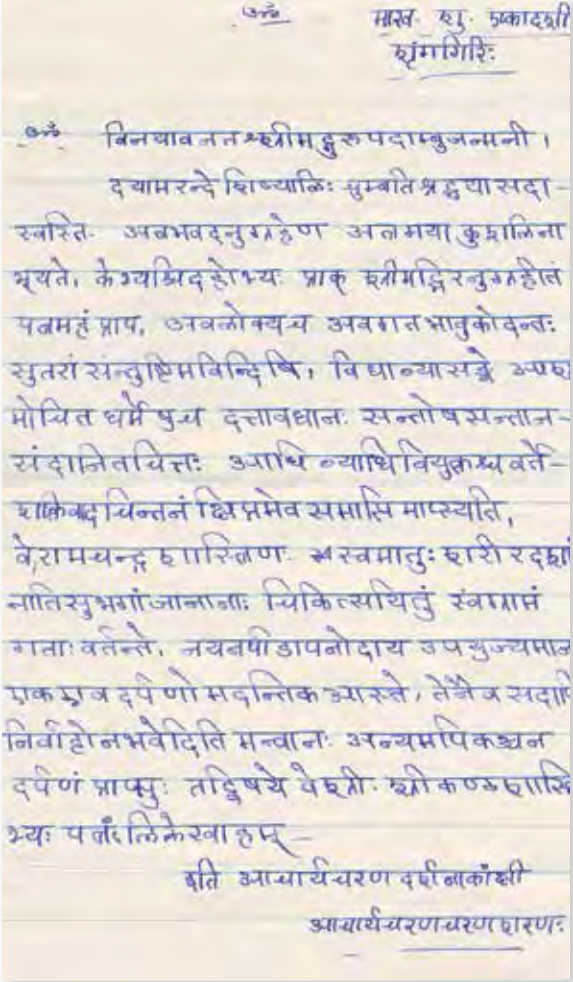 ॐ माघ. शु. एकादशी
शृंगगिरिः
ॐ विनयावनतश्श्रीमद्गुरुपदाम्बुजन्मनी ।
दयामरन्दे शिष्यालिः चुम्बति श्रद्धया सदा -
स्वस्ति. अत्रभवदनुग्रहेण अत्र मया कुशलिना
भूयते, केभ्यश्चिदहोभ्यः प्राक् श्रीमद्भिरनुगृहीतं
पत्रमहं प्राप, अवलोक्य च अवगतभावुकोदन्तः
सुतरां संतुष्टिमविन्दिषि, विद्याव्यासङ्गे
मोचित धर्मेषु च दत्तावधानः सन्तोषसन्तान-
संदानितचित्तः आधि व्याधिवियुक्तश्च वर्ते -
शक्तिवाद चिन्तनं क्षिप्रमेव समाप्ति माप्स्यति,
वे,रामचन्द्र शास्त्रिणः स्वमातुः शरीरदशां
नातिसुभगां जानानाः चिकित्सयितुं स्वग्रामं
गताः वर्तन्ते, नयनपीडापनोदाय उपयुज्यमान
एक एव दर्पणो मदन्तिक आस्ते, तेनैव सदापि
निर्वाहो न भवेदिति मन्वानः अन्यमपि कञ्चन
दर्पणं प्राप्सुः तद्विषये वेश्री. श्रीकण्ठशास्त्रि
भ्यः पत्रं लिलेखाहम् -
इति आचार्यचरण दर्शनाकांक्षी
आचार्यचरणचरणशरणः